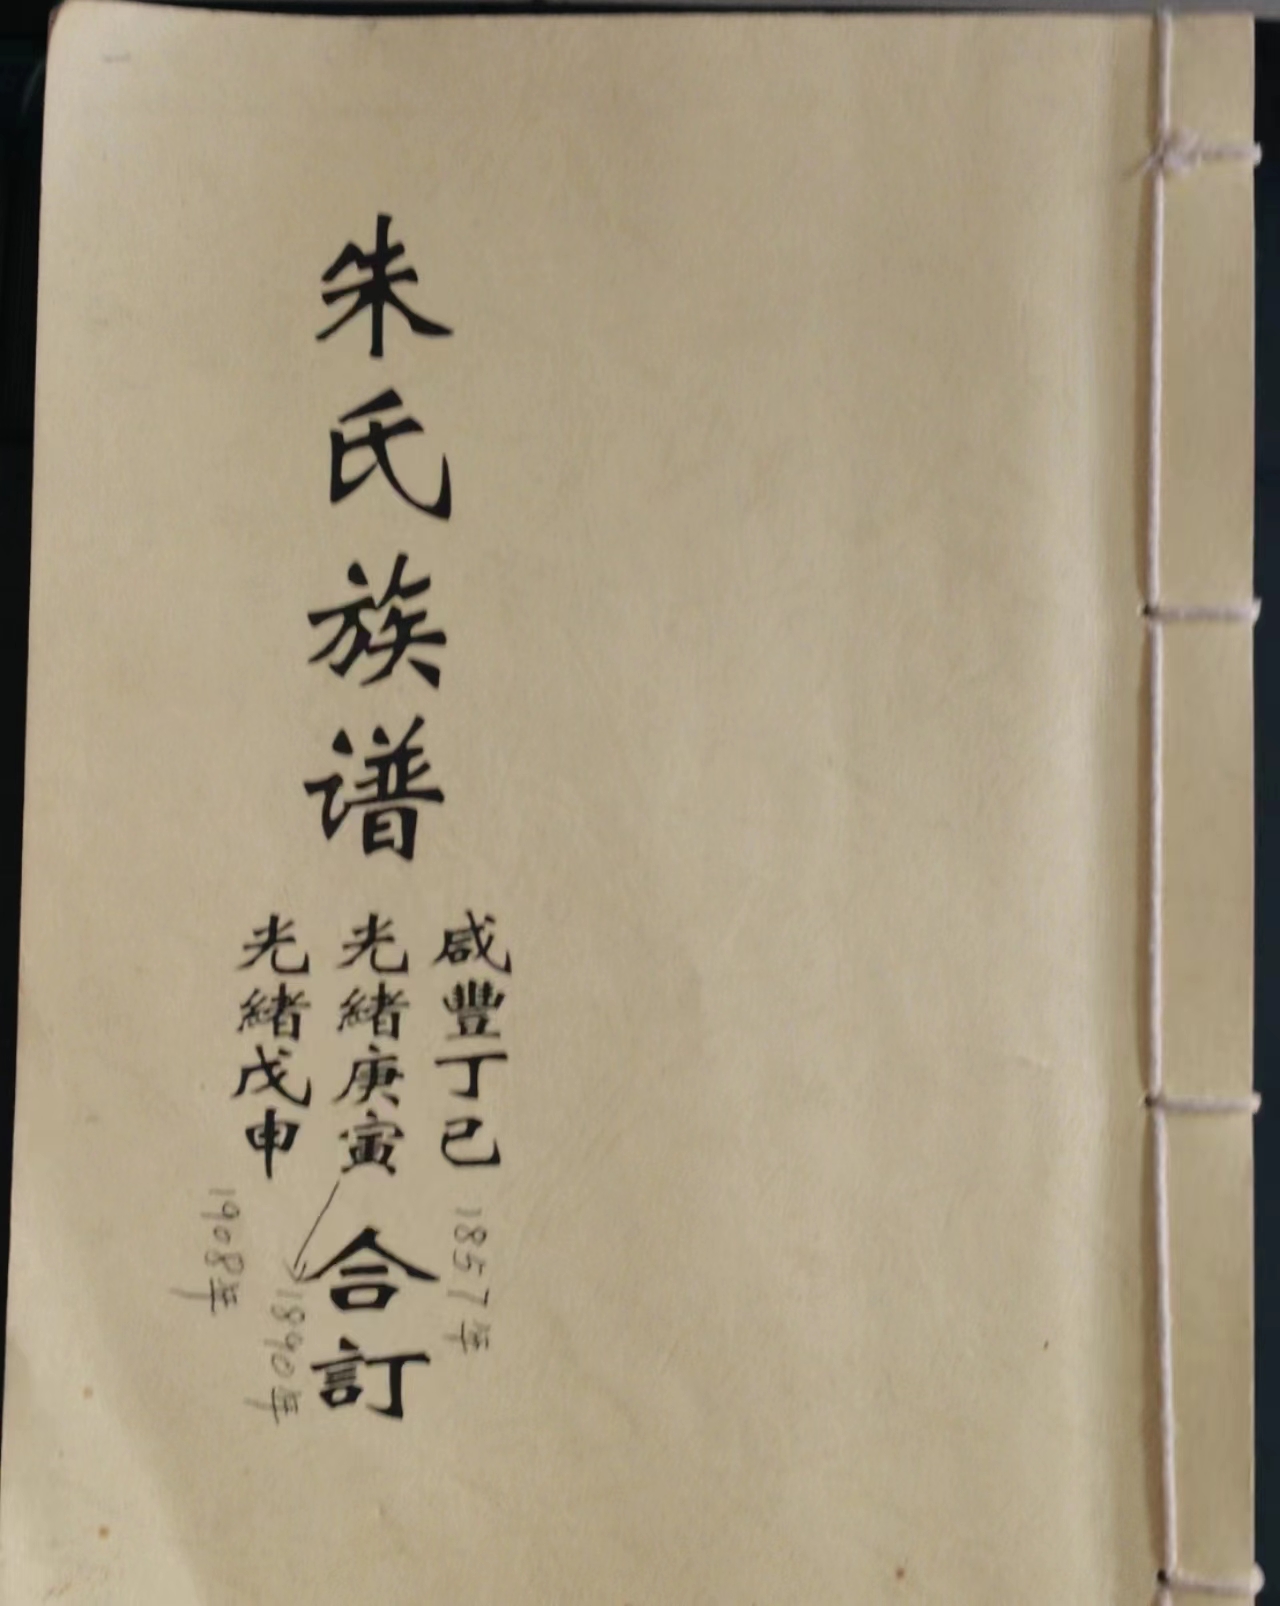 朱氏族谱
咸豐丁巳
光緒庚寅
光緒戊申
合訂
1857年
1890年
1908年